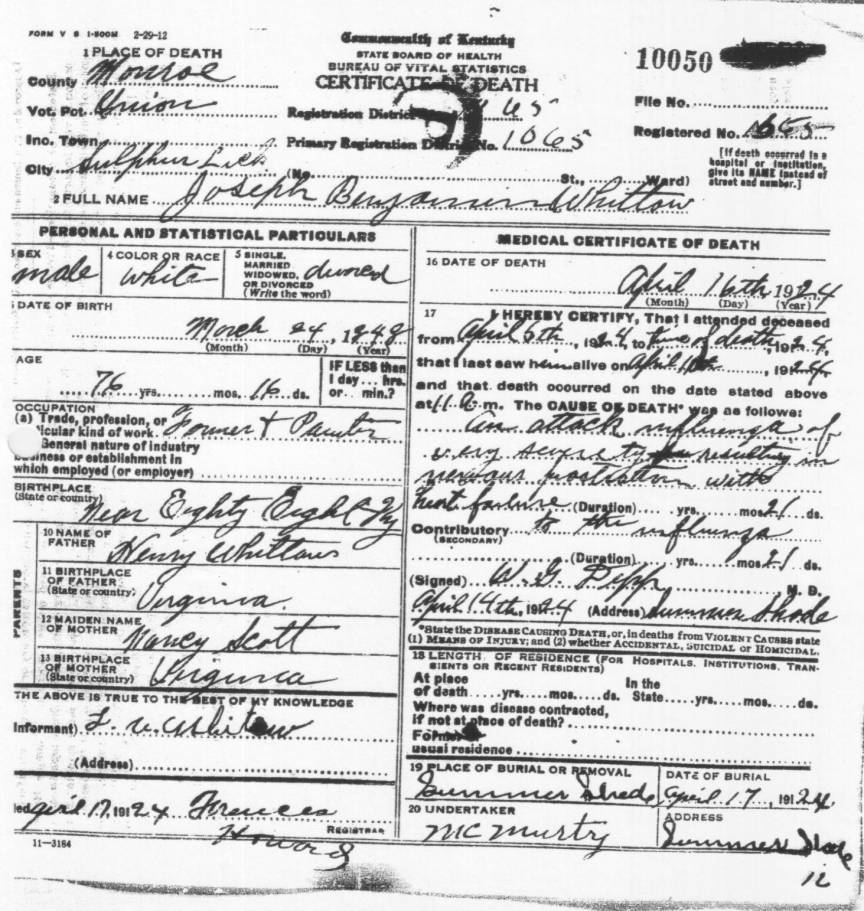 FORM V S 1-500M 2-29-12
Commonwealth of Kentucky
STATE BOARD OF HEALTH
BUREAU OF VITAL STATISTICS
CERTIFICATE OF DEATH
10050
1 PLACE OF DEATH
County Monroe
Vot. Pct. Union
Registration District 65
File No.
Inc. Town
Primary Registration District No. 1065
Registered No.
[If death occurred in a hospital or institution, give its NAME instead of street and number.]
City Sulphur Lick (No. St., Ward)
2 FULL NAME Joseph Benjamin Whittow
PERSONAL AND STATISTICAL PARTICULARS
SEX male
4 COLOR OR RACE white
5 SINGLE, MARRIED WIDOWED, OR DIVORCED (Write the word)
DATE OF BIRTH
March 24, 1848
(Month) (Day) (Year)
AGE
76 yrs. mos. 16 ds.
IF LESS than 1 day... hrs. or... min.?
OCCUPATION
(a) Trade, profession, or
icular kind of work
General nature of industry
business or establishment in
which employed (or employer)
BIRTHPLACE
(State or country) Near Eighty Eight Ky
10 NAME OF FATHER Henry Whittow
11 BIRTHPLACE OF FATHER (State or country) Virginia.
PARENTS
12 MAIDEN NAME OF MOTHER Nancy Scott
13 BIRTHPLACE OF MOTHER (State or country) Virginia
THE ABOVE IS TRUE TO THE BEST OF MY KNOWLEDGE
Informant)
(Address)
led April 17, 1924 Frances
Howard
REGISTRAR
11-3184
MEDICAL CERTIFICATE OF DEATH
16 DATE OF DEATH
April 16th 1924
(Month) (Day) (Year)
17 I HEREBY CERTIFY, That I attended deceased
from April 6th, 1924, to time of death, 1924,
that I last saw him alive on April, 1924
and that death occurred on the date stated above
at 11 m. The CAUSE OF DEATH* was as follows:
An attack influenza of
very resulting in
nervous prostration with
heart failure (Duration) yrs. mos. 21 ds.
Contributory to the influenza
(SECONDARY)
(Duration) yrs. mos. 21 ds.
(Signed) W. G. Depp M. D.
April 14th, 1924 (Address) Summer Shade
*State the DISEASE CAUSING DEATH, or, in deaths from VIOLENT CAUSES state
(1) MEANS OF INJURY; and (2) whether ACCIDENTAL, SUICIDAL or HOMICIDAL.
18 LENGTH OF RESIDENCE (FOR HOSPITALS, INSTITUTIONS, TRAN-
SIENTS OR RECENT RESIDENTS)
At place of death yrs. mos. ds. In the State yrs. mos. ds.
Where was disease contracted,
if not at place of death?
Former
usual residence
19 PLACE OF BURIAL OR REMOVAL Summer Shade
DATE OF BURIAL April 17, 1924
20 UNDERTAKER McMurtry
ADDRESS Summer Shade
12